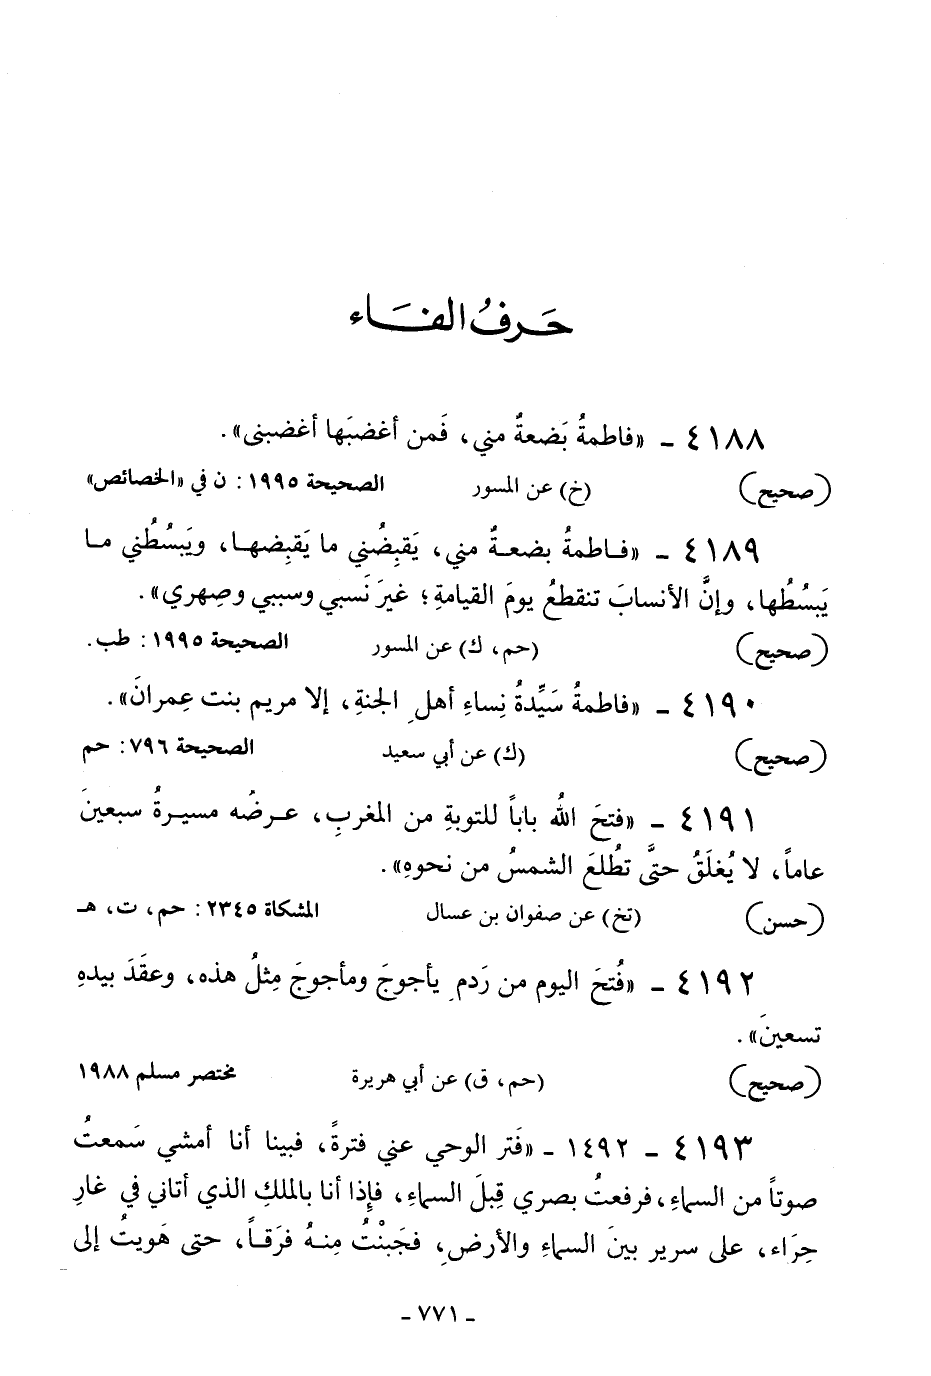 حَرفُ الفَاء
٤١٨٨ - «فاطمةُ بَضعةٌ مني، فَمن أغضبَها أغضبنى».
(صحيح) (خ) عن المسور الصحيحة ١٩٩٥: ن في «الخصائص»
٤١٨٩ - «فاطمةُ بضعةٌ مني، يَقبِضُني ما يَقبِضها، ويَبسُطُني ما
يَبسُطُها، وإنَّ الأنسابَ تنقطعُ يومَ القيامةِ؛ غيرَ نَسبي وسببي وصِهري».
(صحيح) (حم، ك) عن المسور الصحيحة ١٩٩٥: طب.
٤١٩٠ - «فاطمةُ سَيِّدةُ نِساءِ أهلِ الجنةِ، إلا مريم بنت عِمرانَ».
(صحيح) (ك) عن أبي سعيد الصحيحة ٧٩٦: حم
٤١٩١ - «فتحَ اللهُ باباً للتوبةِ من المغربِ، عرضُه مسيرةُ سبعينَ
عاماً، لا يُغلَقُ حتَّى تطُلعَ الشمسُ من نحوهِ».
(حسن) (تخ) عن صفوان بن عسال المشكاة ٢٣٤٥: حم، ت، هـ
٤١٩٢ - «فُتحَ اليوم من رَدمِ يأجوجَ ومأجوجَ مِثلُ هذه، وعقَدَ بيدهِ
تسعينَ».
(صحيح) (حم، ق) عن أبي هريرة مختصر مسلم ١٩٨٨
٤١٩٣ - ١٤٩٢ - «فَتر الوحي عني فترةً، فبينا أنا أمشي سَمعتُ
صوتاً من السماءِ، فرفعتُ بصري قِبلَ السماءِ، فإِذا أنا بالملكِ الذي أتاني في غارِ
حِرَاء، على سرير بينَ السماءِ والأرضِ، فجَبنْتُ مِنهُ فرَقاً، حتى هَويتُ إلى
- ٧٧١ -